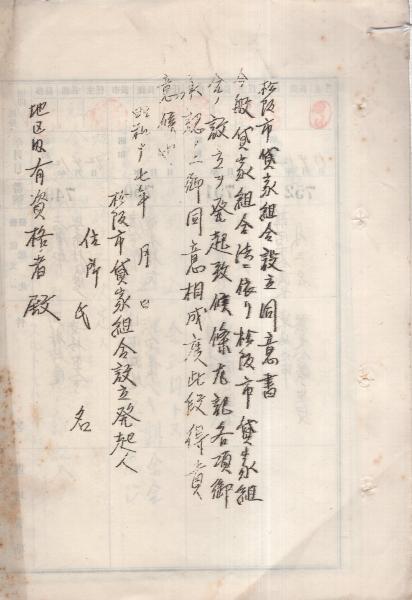 松阪市貸家組合設立同意書
今般貸家組合法ニ依リ松阪市貸家組
合ノ設立ヲ発起致候條左記各項御
承認ノ上御同意相成度此段得貴
意候也
昭和十七年 月 日
松阪市貸家組合設立発起人
住所 氏 名
地区内有資格者殿